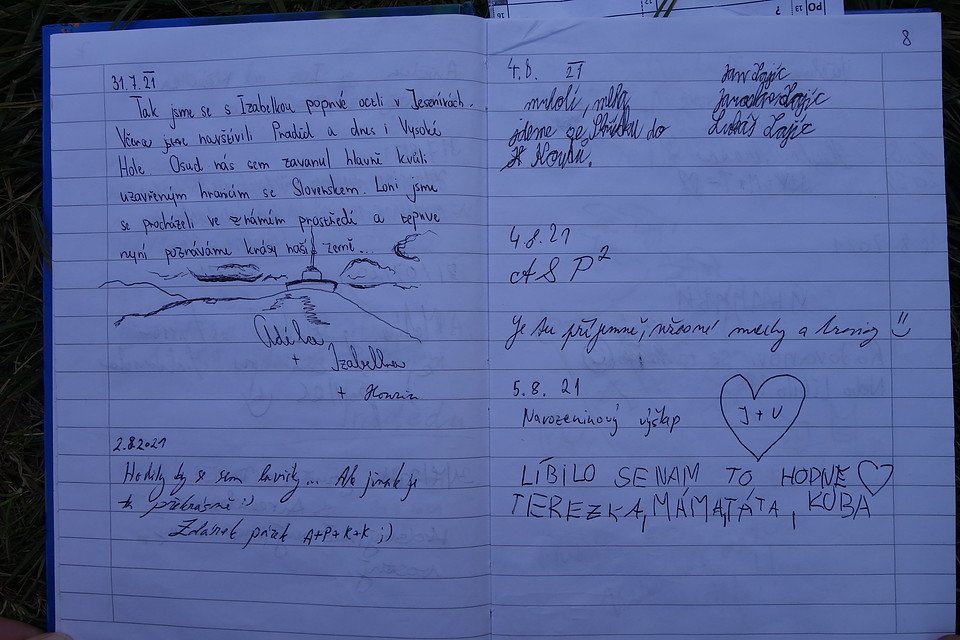 31.7.21
Tak jsme se s Izabelkou poprvé octli v Jeseníkách.
Včera jsme navštívili Praděd a dnes i Vysoké
Hole. Osud nás sem zavanul hlavně kvůli
uzavřeným hranicím se Slovenskem. Loni jsme
se procházeli ve známém prostředí a teprve
nyní poznáváme krásy naší země...
Adélka
+ Izabelka
+ Honzin
2.8.2021
Hodily by se sem lavičky... Ale jinak je
to překrásné :)
Zdárek párek A+P+K+K ;)
8
4.8. 21
jdeme ze do
Jan Zajíc
Zajíc
Lukáš Zajíc
4.8.21
A S P²
Je tu příjemně, a
5.8. 21
Narozeninový výšlap
J + V
LÍBILO SE NAM TO HODNE
TEREZKA, MÁMA, TÁTA, KUBA